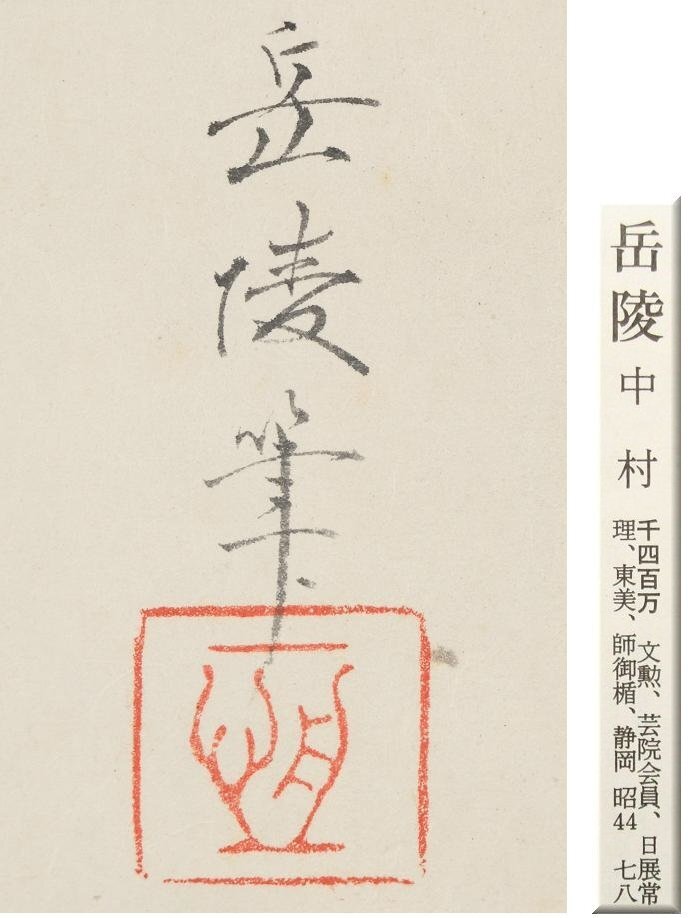 岳陵筆
岳陵 中村
千四百万 文勲、芸院会員、日展常
理、東美、師御楯、静岡 昭44 七八